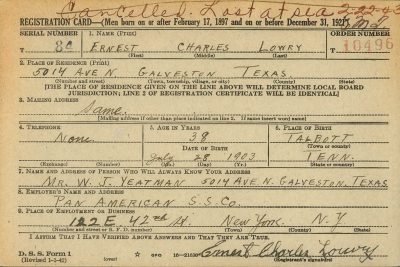 Cancelled. Lost at sea 2-22-43
REGISTRATION CARD—(Men born on or after February 17, 1897 and on or before December 31, 1921)
SERIAL NUMBER
1. NAME (Print)
ORDER NUMBER
84
ERNEST CHARLES LOWRY
10496
(First) (Middle) (Last)
2. PLACE OF RESIDENCE (Print)
5014 AVE N. GALVESTON TEXAS.
(Number and street) (Town, township, village, or city) (County) (State)
[THE PLACE OF RESIDENCE GIVEN ON THE LINE ABOVE WILL DETERMINE LOCAL BOARD
JURISDICTION; LINE 2 OF REGISTRATION CERTIFICATE WILL BE IDENTICAL]
3. MAILING ADDRESS
Same.
[Mailing address if other than place indicated on line 2. If same insert word same]
4. TELEPHONE
5. AGE IN YEARS
6. PLACE OF BIRTH
None
38
TALBOTT
DATE OF BIRTH
(Town or county)
July 28 1903
TENN.
(Exchange) (Number)
(Mo.) (Day) (Yr.)
(State or country)
7. NAME AND ADDRESS OF PERSON WHO WILL ALWAYS KNOW YOUR ADDRESS
MR. W. J. YEATMAN 5014 AVE N. GALVESTON, TEXAS
8. EMPLOYER'S NAME AND ADDRESS
PAN AMERICAN S.S. Co.
9. PLACE OF EMPLOYMENT OR BUSINESS
122 E 42nd St. New York. N.Y
(Number and street or R. F. D. number) (Town) (County) (State)
I AFFIRM THAT I HAVE VERIFIED ABOVE ANSWERS AND THAT THEY ARE TRUE.
D. S. S. Form 1
(Revised 1-1-42) (over)
GPO
Ernest Charles Lowry
(Registrant's signature)